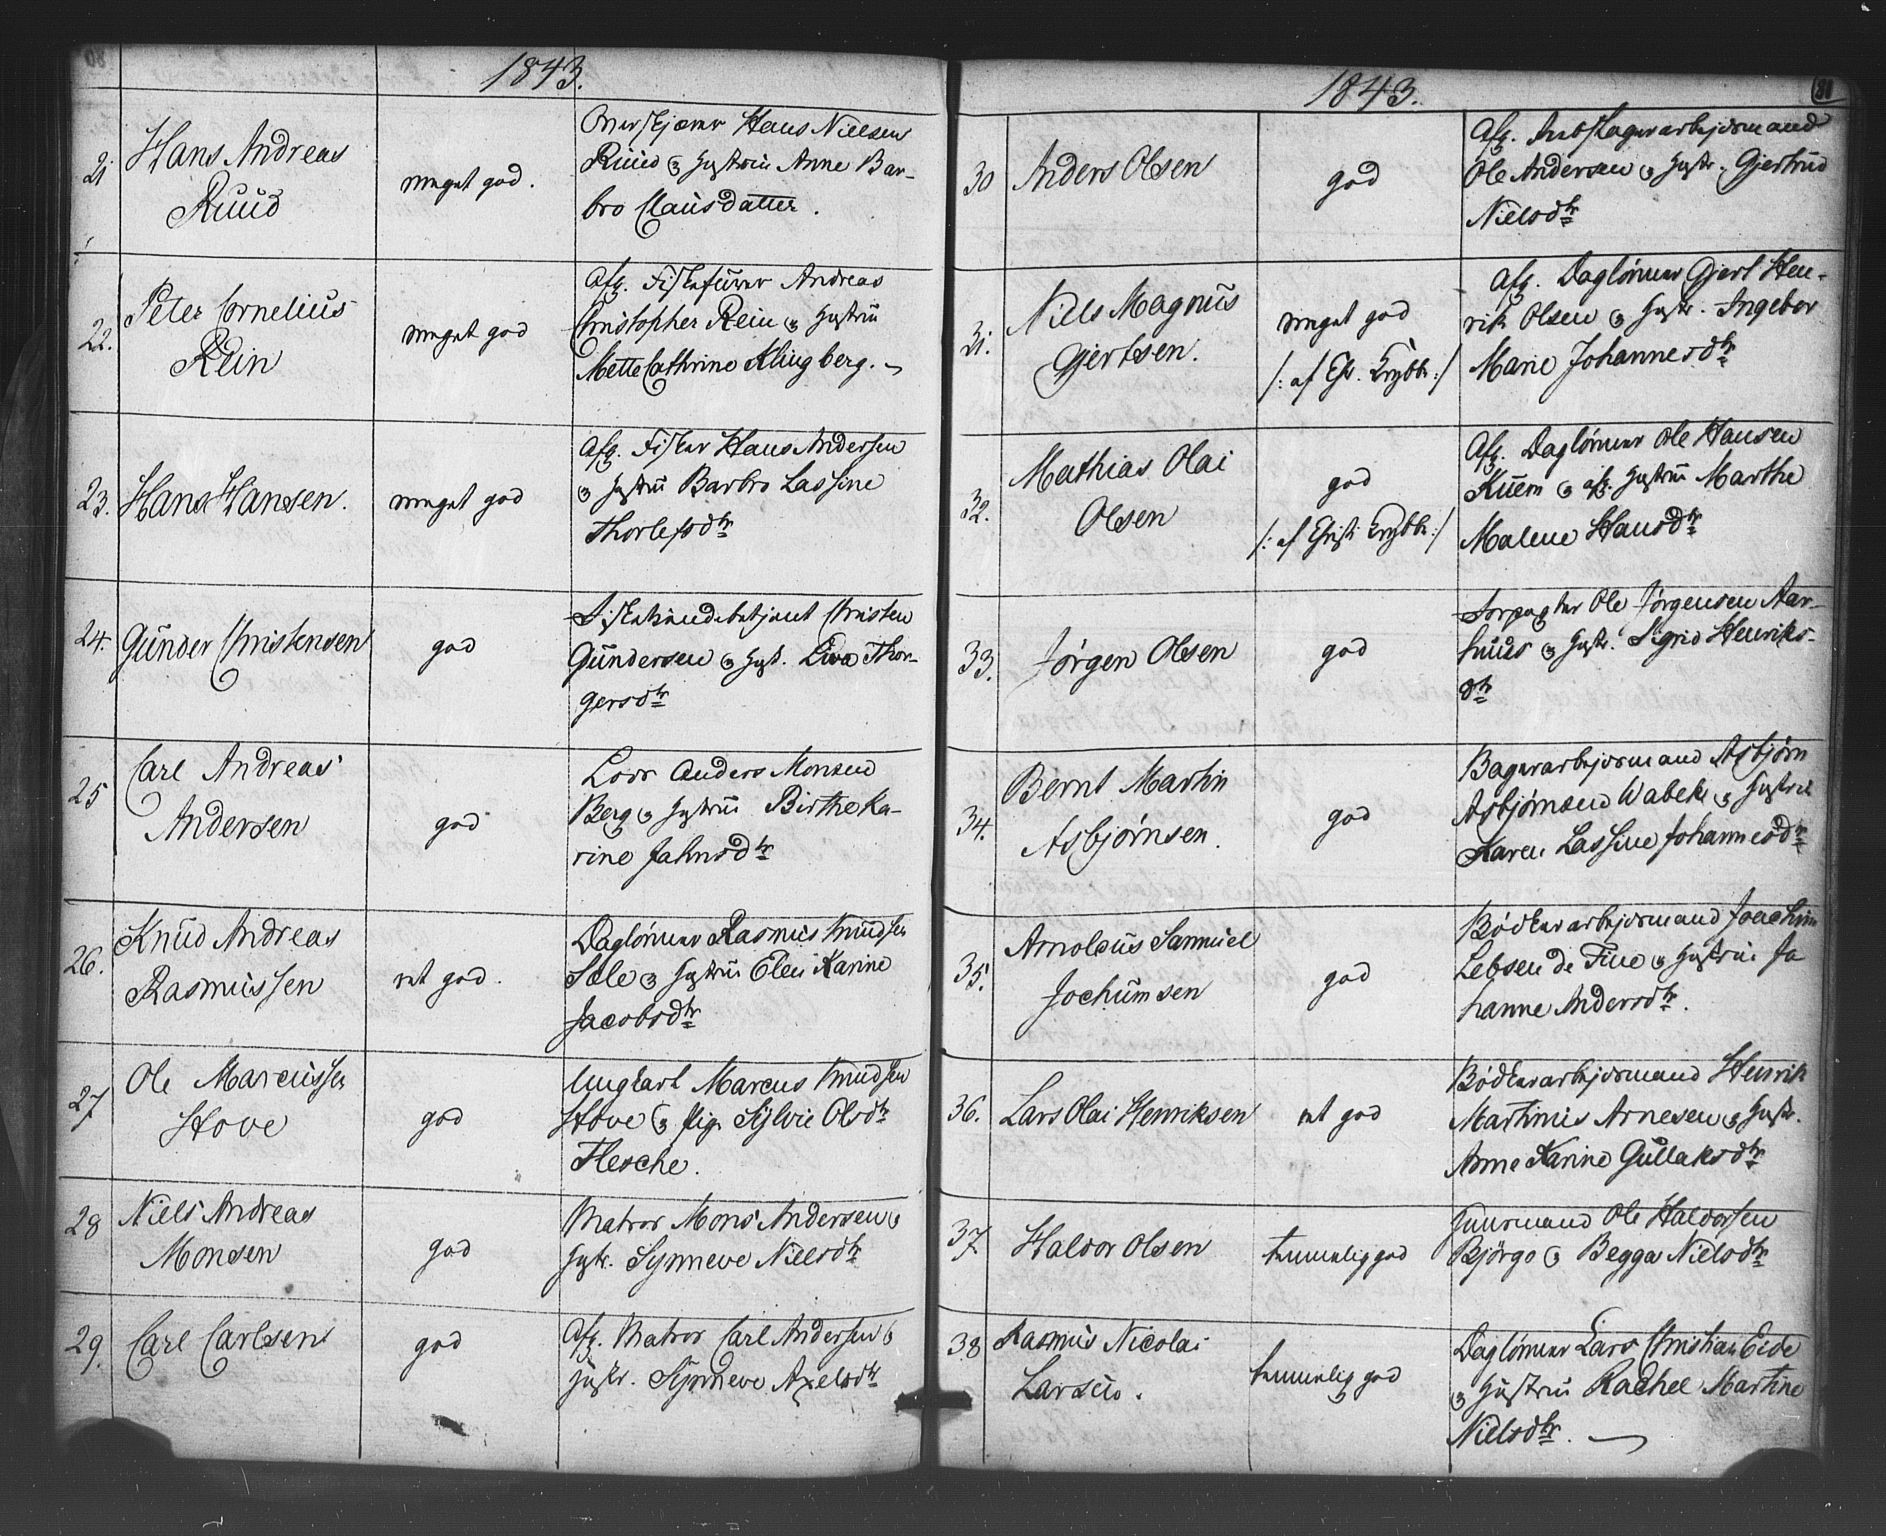 1843.
21 Hans Andreas
Ruud
meget god.
Hans Nielsen
Ruud og Hustrue Anne Bar-
bro Clausdatter.
22. Peter Cornelius
Rein
meget god
Afg. Andreas
Christopher Rein og Hustrue
Mette Cathrine Klingberg.
23. Hans Hansen.
meget god
Afg. Fisker Hans Andersen
og Hustrue Barbro Lassine
Thorlefsdtr
24. Gunder Christensen
god
Christen
Gundersen og Hust. Thor-
gersdtr
25 Carl Andreas
Andersen
god
Lods Anders Monsen
Berg og Hustrue Birthe Ka-
rine Jahnsdtr
26. Knud Andreas
Rasmussen
ret god.
Daglönner Rasmus Knudsen
og Hustrue Elen Karine
Jacobsdtr
27 Ole Marcussen
Hove
god
Ungkarl Marcus Knudsen
Hove og Pige Sylvie Olsdtr
Flesche.
28 Niels Andreas
Monsen
god
Matros Mons Andersen og
Hustr. Synneve Nielsdtr
29. Carl Carlsen
god
Afg. Matros Carl Andersen og
Hustr. Synneve Axelsdtr
81
1843.
30 Anders Olsen
god
Afg.
Ole Andersen og Hustr. Gjertrud
Nielsdtr
31. Niels Magnus
Gjertsen.
meget god
/: af :/
Afg. Daglönner Gjert Hen-
rik Olsen og Hustr. Ingebor
Marie Johannesdtr
32. Mathias Olai
Olsen
god
/: af :/
Afg. Daglönner Ole Hansen
og afg. Hustrue Marthe
Malene Hansdtr
33. Jörgen Olsen
god
Ole Jörgensen Aar-
huus og Hustr. Sigrid Henriks-
dtr
34. Bernt Martin
Asbjørnsen.
god
Asbjørn
Asbjørnsen Wabek og Hustrue
Karen Lassine Johannesdtr
35. Arnoldus Samuel
Jochumsen
god
Bödkerarbejdsmand Joachim
Lebsen de Fine og Hustrue Jo
hanne Andersdtr.
36. Lars Olai Henriksen
ret god
Bödkerarbejdsmand Henrik
Martinus Arnesen og Hustr.
Anne Karine Gullaksdtr
37. Haldor Olsen
temmelig god
Huusmand Ole Haldorsen
Björgo og Begga Nielsdtr
38 Rasmus Nicolai
Larsen.
temmelig god
Daglönner Lars Christian Eide
og Hustrue Rachel Martine
Nielsdtr.